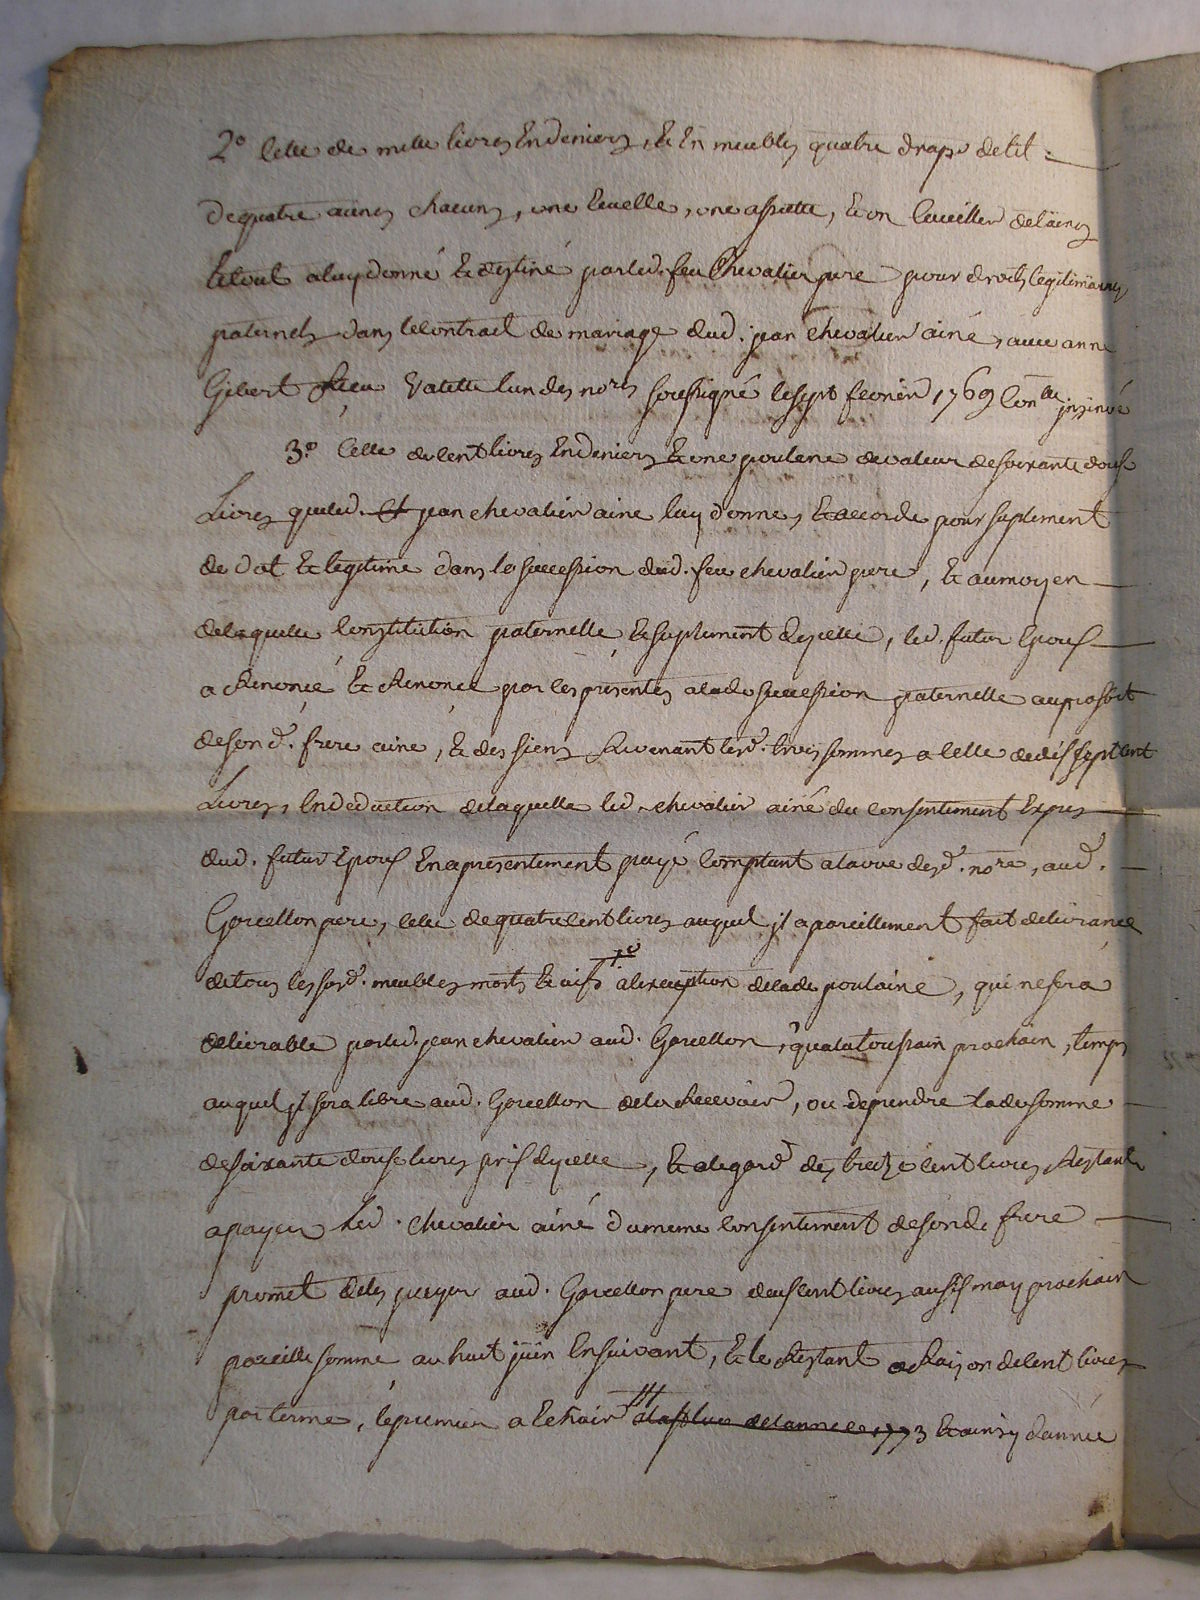 2° celle de mille livres en deniers, et en meubles quatre draps de lit
de quatre aunes chacuns, une ecuelle, une assiette, et un cueiller d'etain
le tout a luy donné et destiné par led. feu chevalier pere pour droits legitimaires
paternels dans le contrat de mariage dud. jean chevalier ainé, avec anne
Gibert Valette l'un des nores soussigné le sept fevrier 1769 insinué
3.° celle de cent livres en deniers et une poulene de valeur de soixante douse
Livres que led. jean chevalier ainé luy donne, et accorde pour suplement
de dot et legitime dans la succession dud. feu chevalier pere, et au moyen
de laquelle constitution paternelle et suplement d'ycelle, led. futur epous
a renoncé et renonce par les présentes a lade succession paternelle au profit
de son d. frere ainé, et des siens revenant lesd. trois sommes a celle de dis sept cent
Livres, en deduction de laquelle led. chevalier ainé du consentement expres
dud. futur epous en a presentement payé comptant a la vue desd. nores, aud.
Gorcellon pere, celle de quatre cent livres auquel jl a pareillement fait delivrance
de tous les susd. meubles morts et vifs a l'exception de lade poulaine, qui ne sera
delivrable par led. jean chevalier aud. Gorcellon, qu'a la toussain prochain, temps
auquel jl sera libre aud. Gorcellon de la recevoir, ou de prendre lade somme
de soixante douse livres pris d'ycelle, et a l'egard des treize cent livres restants
a payer led. chevalier ainé du meme consentement de son d. frere
promet de les payer aud. Gorcellon pere deus cent livres au six may prochain
pareille somme au huit juin ensuivant, et le restant a raison de cent livres
par terme, le premier a echoir de l'année 1773 et ainsy d'année